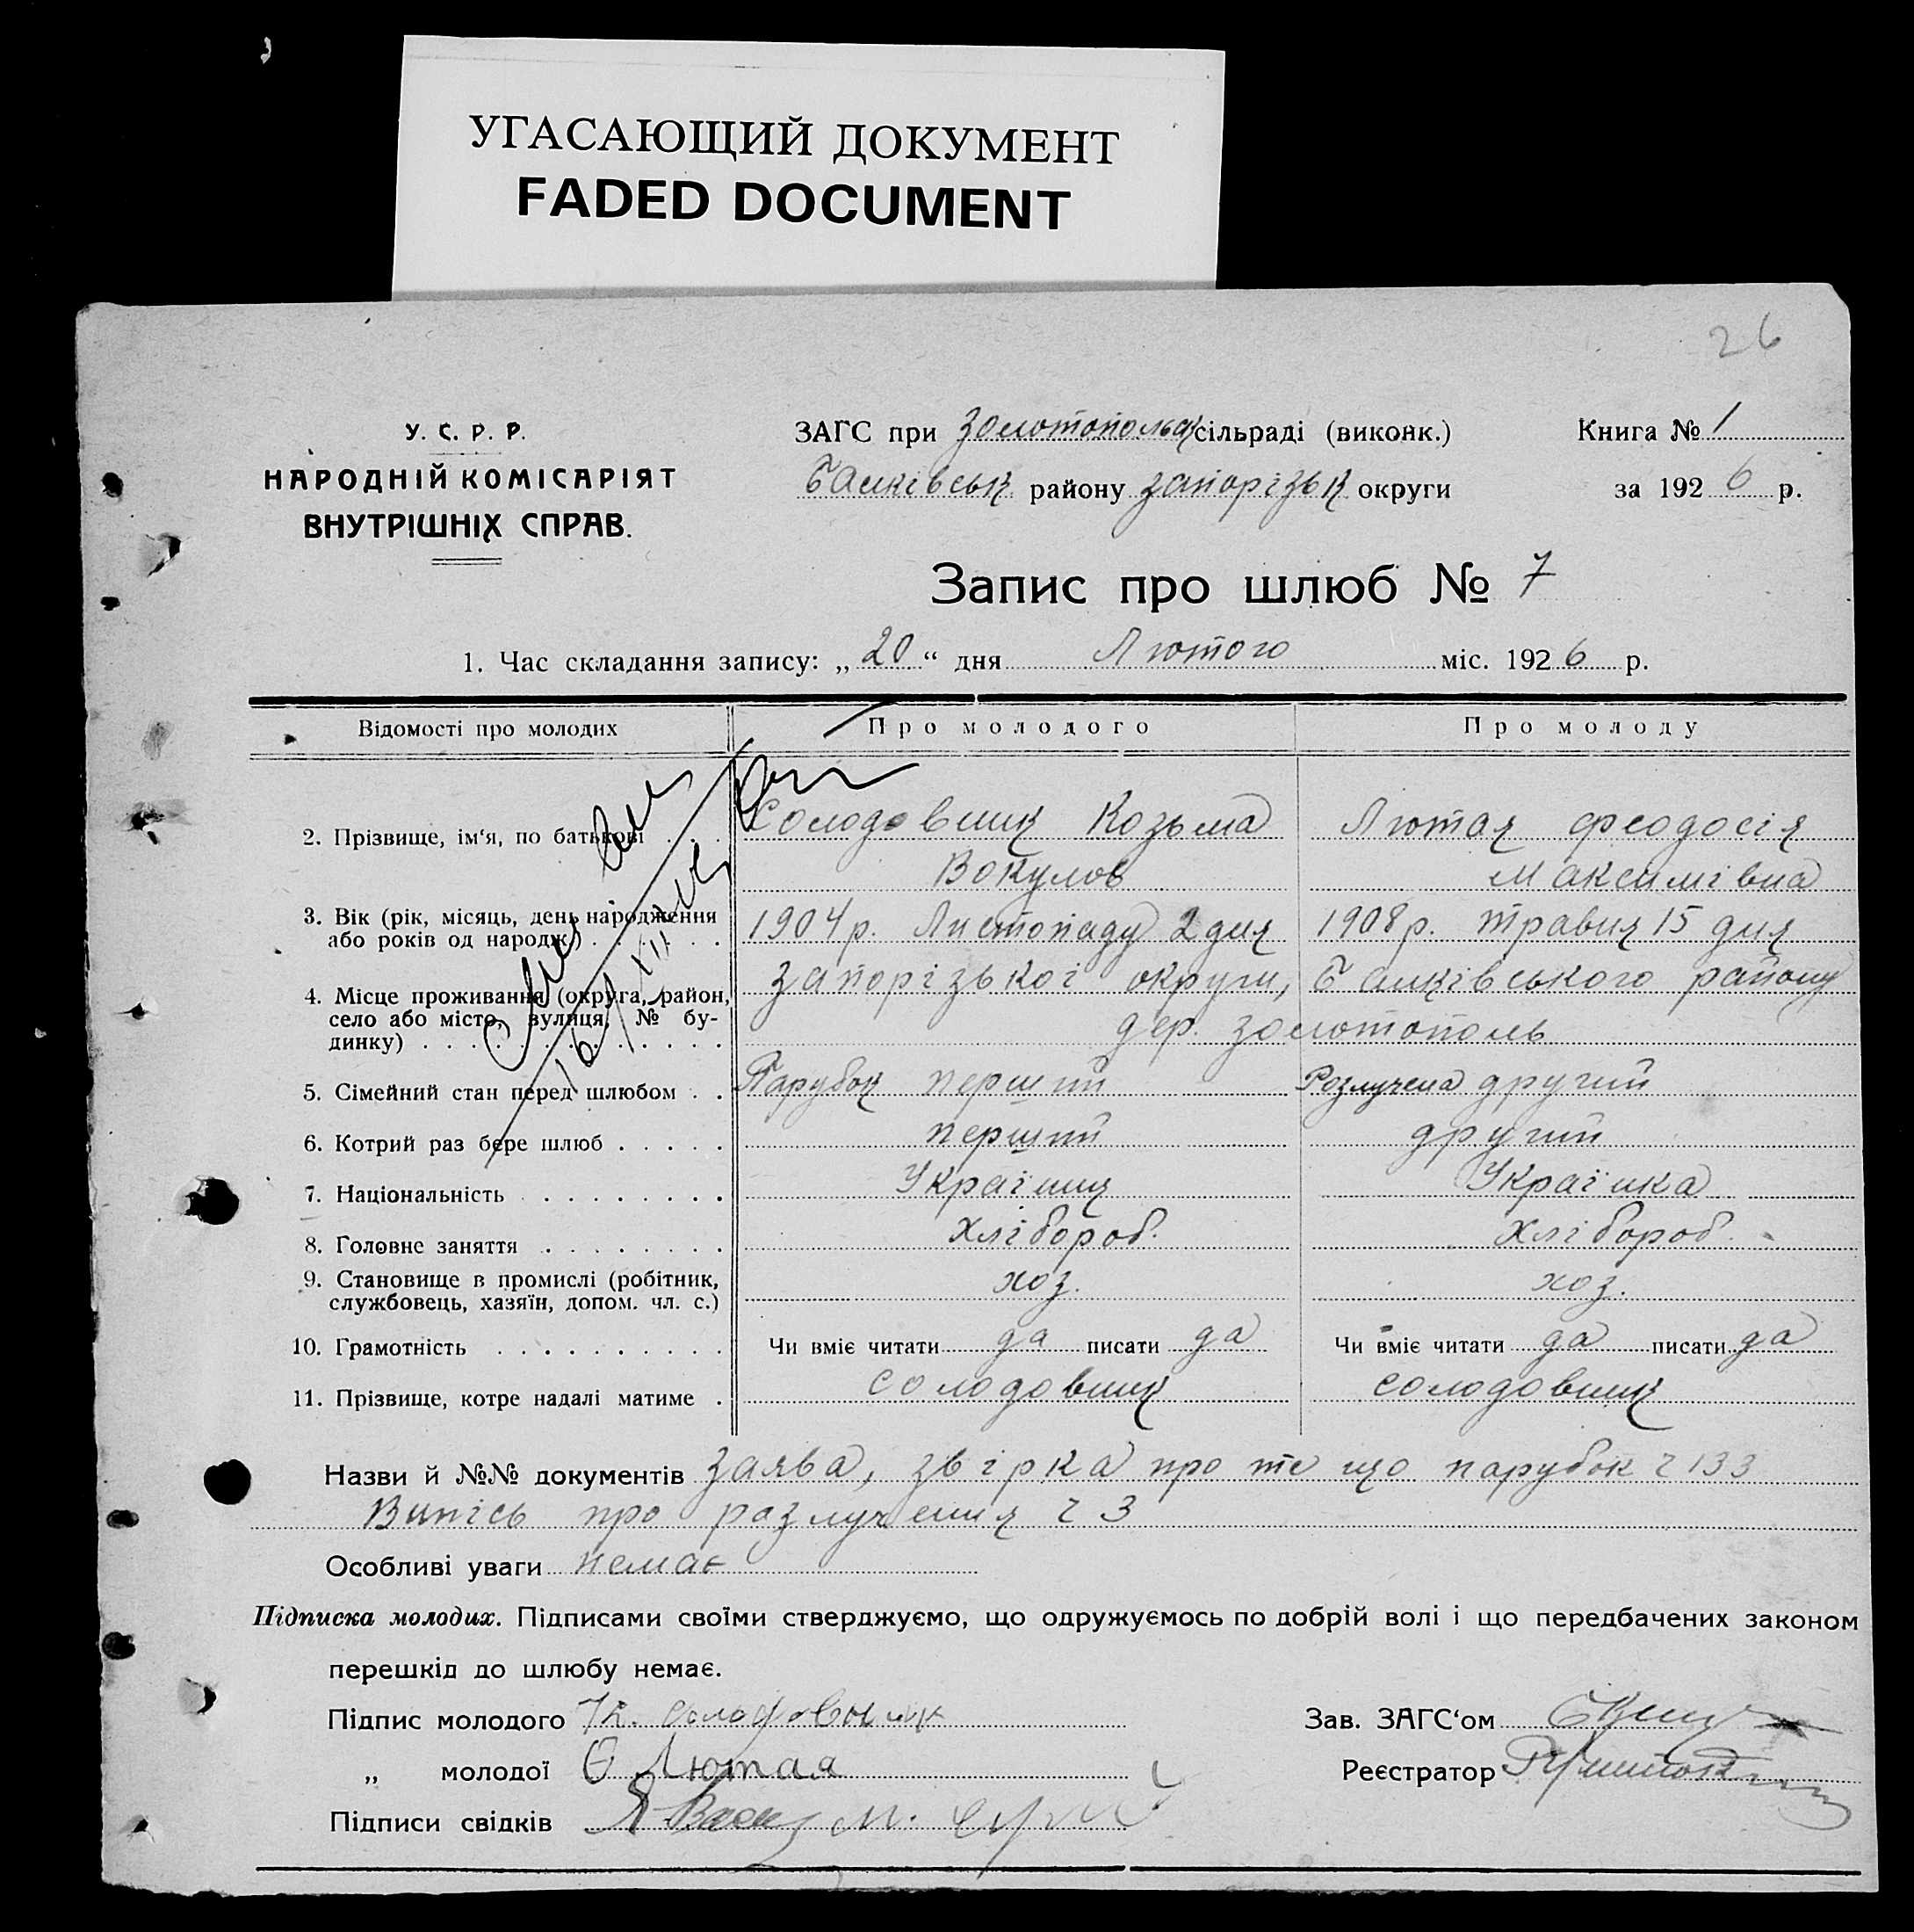 УГАСАЮЩИЙ ДОКУМЕНТ
FADED DOCUMENT
26
У. С. Р. Р.
НАРОДНІЙ КОМІСАРІЯТ
ВНУТРІШНІХ СПРАВ.
ЗАГС при Золотопольск сільраді (виконк.)
Балківськ району Запорізьк округи
Книга № 1
за 1926 р.
Запис про шлюб № 7
1. Час складання запису: „20“ дня Лютого міс. 1926 р.
Відомості про молодих Про молодого Про молоду
2. Прізвище, ім'я, по батькові . . . Солодовник Козьма Лютая Феодосія
Вокулов Максимівна
3. Вік (рік, місяць, день народження або років од народж.) . . . . . . 1904 р. Листопаду 2 дня 1908 р. травня 15 дня
4. Місце проживання (округа, район, село або місто, вулиця, № будинку) . . . Запорізької округи, Балківського району
дер. Золотополь
5. Сімейний стан перед шлюбом . . Парубок перший Розлучена другий
6. Котрий раз бере шлюб . . . . . перший другий
7. Національність . . . . . . . . Українец Українка
8. Головне заняття . . . . . . . Хлібороб. Хлібороб.
9. Становище в промислі (робітник, службовець, хазяїн, допом. чл. с.) хоз. хоз.
10. Грамотність . . . . . . . . . Чи вміє читати да писати да Чи вміє читати да писати да
11. Прізвище, котре надалі матиме . Солодовник Солодовник
Назви й №№ документів Заява, звірка про те що парубок ч 133
Випісь про разлучення ч 3
Особливі уваги немає
Підписка молодих. Підписами своїми стверджуємо, що одружуємось по добрій волі і що передбачених законом
перешкід до шлюбу немає.
Підпис молодого К. Солодовник
Зав. ЗАГС'ом
„ молодої Ѳ Лютая
Реєстратор
Підписи свідків